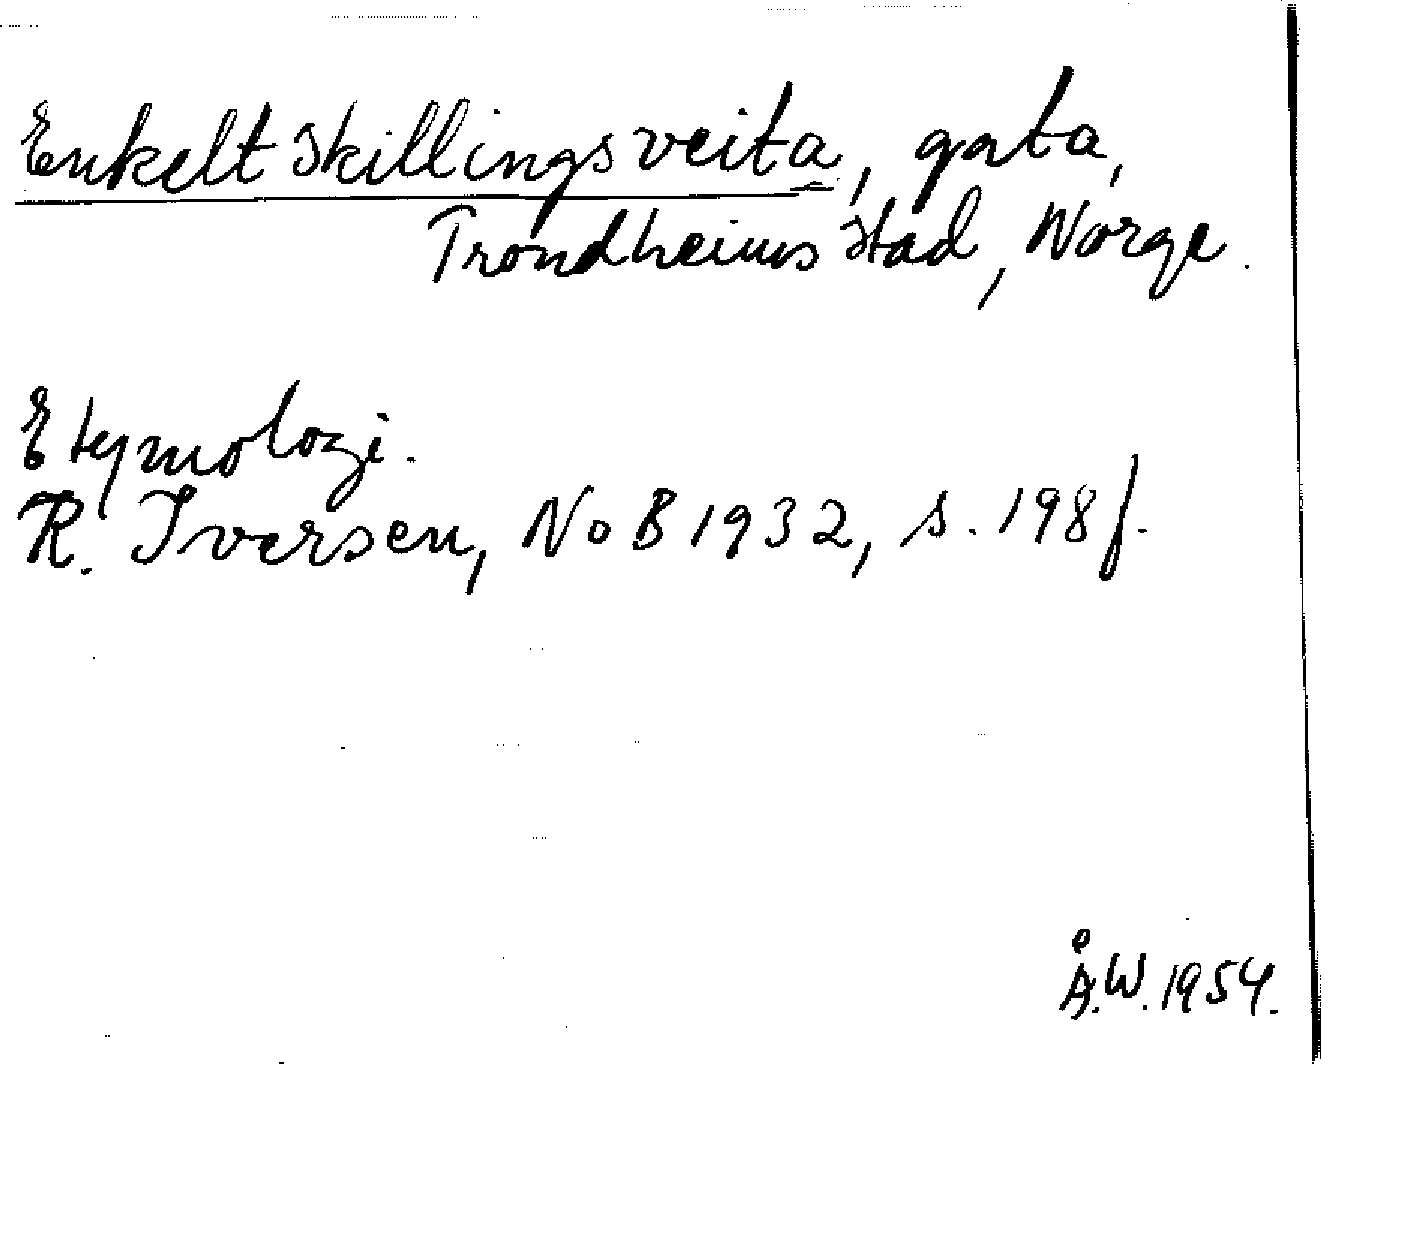 Enkeltskillingsveita, gata,
Trondheims stad, Norge.
Etymologi.
R. Iversen, NoB 1932, s. 198f.
Å.W. 1954.